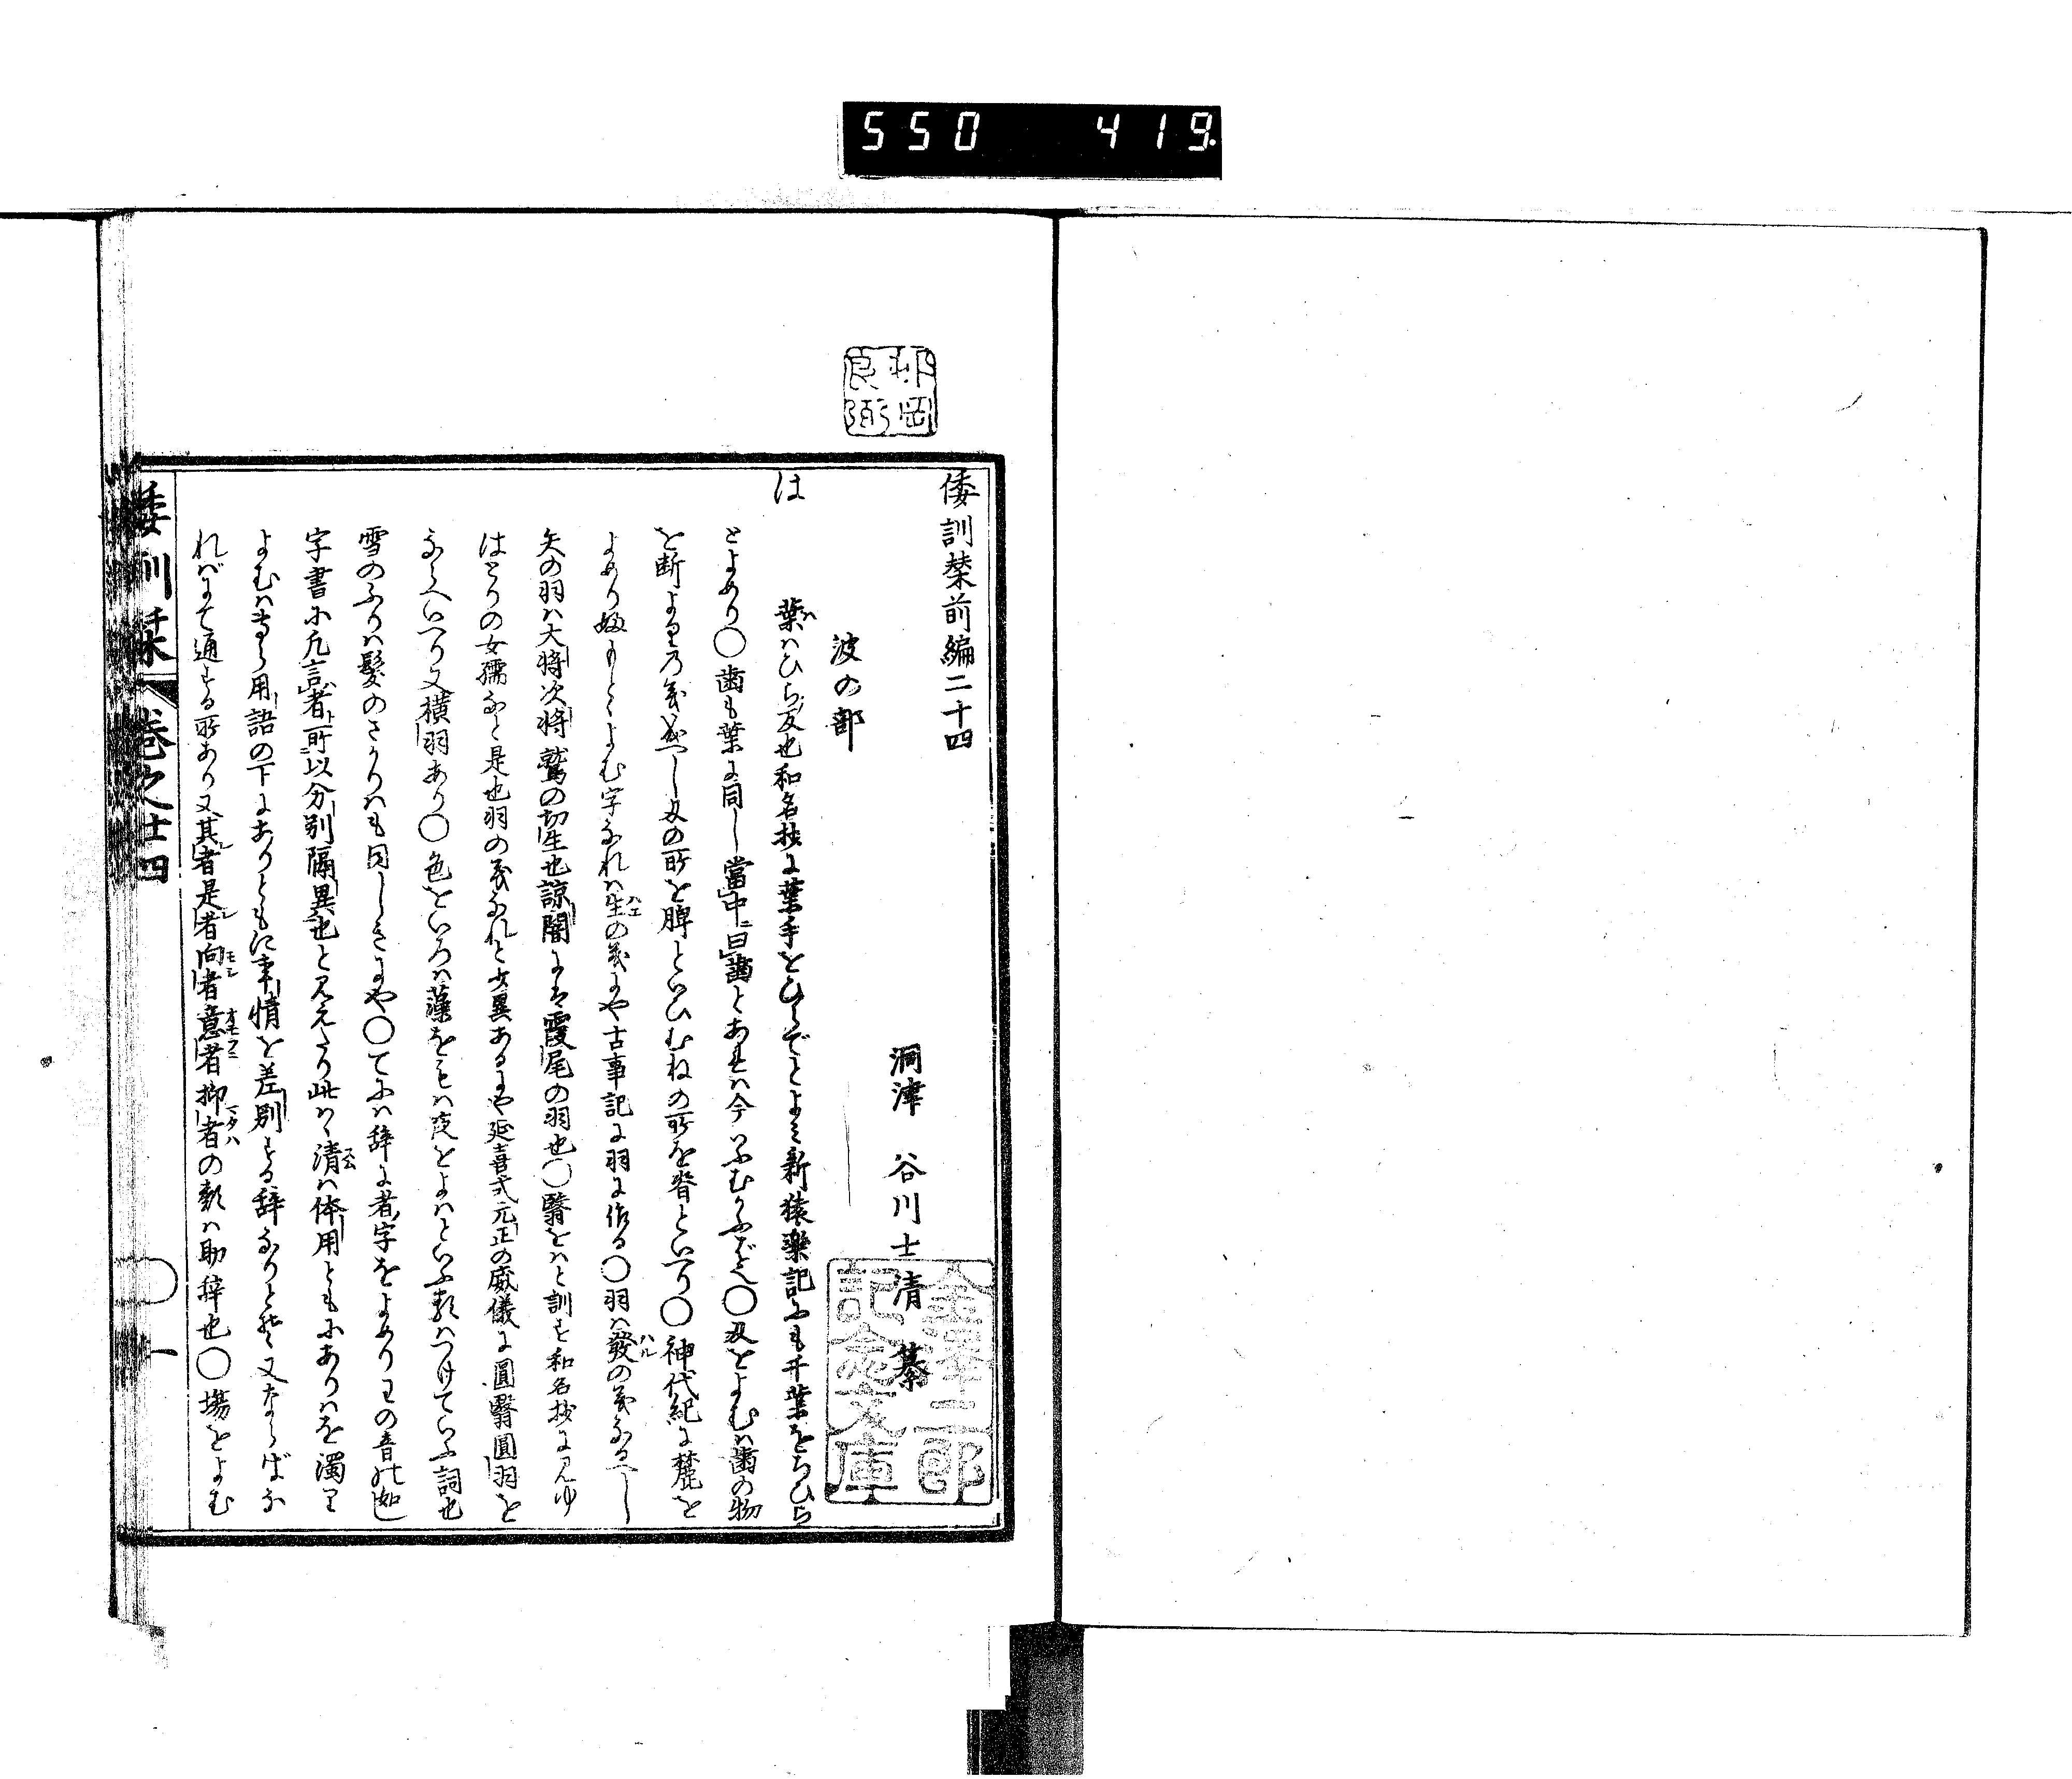 550 419.
倭訓栞前編二十四
洞津 谷川士清 纂
波の部
は
葉ハひら反也和名抄に葉手をひらでとよミ新猿樂記にも千葉をちひら
とよめり○歯も葉に同し當中曰歯とあれハ今いふむかふば也○刃をよむハ歯の物
を断より乃義成へし刃の所を脾といひむねの所を脊といへり○神代紀に麓を
よめり
よむ字なれハ生の義にや古事記に羽に作る○羽ハ發の義なるへし
矢の羽ハ大将次将鷲の切生也諒闇にハ霞尾の羽也○翳をはと訓ミ和名抄に見ゆ
はとりの女孺なと是也羽の義なれと少異あるにや延喜式元正の威儀に圓翳圓羽を
ならへいへり又横羽あり○色をいろハ藻をもハ夜をよハといふ類ハつけていふ詞也
雪のふりハ髪のさかりハも同しきにや○てにハ辞に者字をよめりわの音の如し
字書に凡言者所以分別隔異也と見えたり此ハ清ハ体用ともにありハを濁り
よむハ専ら用語の下にありともに事情を差別する辞なりとそ又ならばな
ればにて通する所あり又其者是者向者意者抑者の類ハ助辞也○場をよむ
倭訓栞 巻之廿四 一
金澤庄三郎
記念文庫